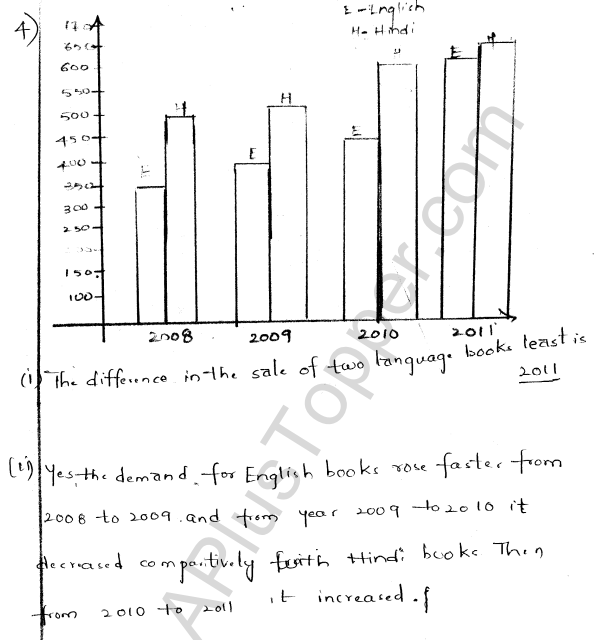 4)
E - English
H - Hindi
650
600
550
500
450
400
350
300
250
150
100
E H
E H
E H
E H
2008 2009 2010 2011
(i) The difference in the sale of two language books least is
2011
(ii) Yes, the demand for English books rose faster from
2008 to 2009 and from year 2009 to 2010 it
decreased compartively Hindi books Then
from 2010 to 2011 it increased.
APlusTopper.com